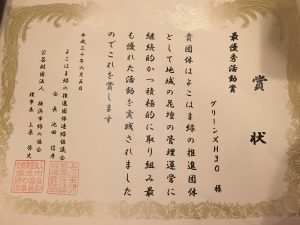 賞状
最優秀活動賞
グリーンズH30 様
貴団体はよこはま緑の推進団体
として地域の花壇の管理運営に
継続的かつ積極的に取り組み最
も優れた活動を実践されました
のでこれを賞します
平成三十年六月五日
よこはま緑の推進団体連絡協議会
会長 池田 信彦
公益財団法人 横浜市緑の協会
理事長 上原 啓史